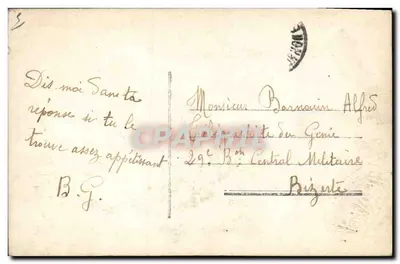 Dis moi dans ta
réponse si tu le
trouve assez appétissant
B.G.
Monsieur Barnouin Alfred
du Génie
29e Bon Central Militaire
Bizerte